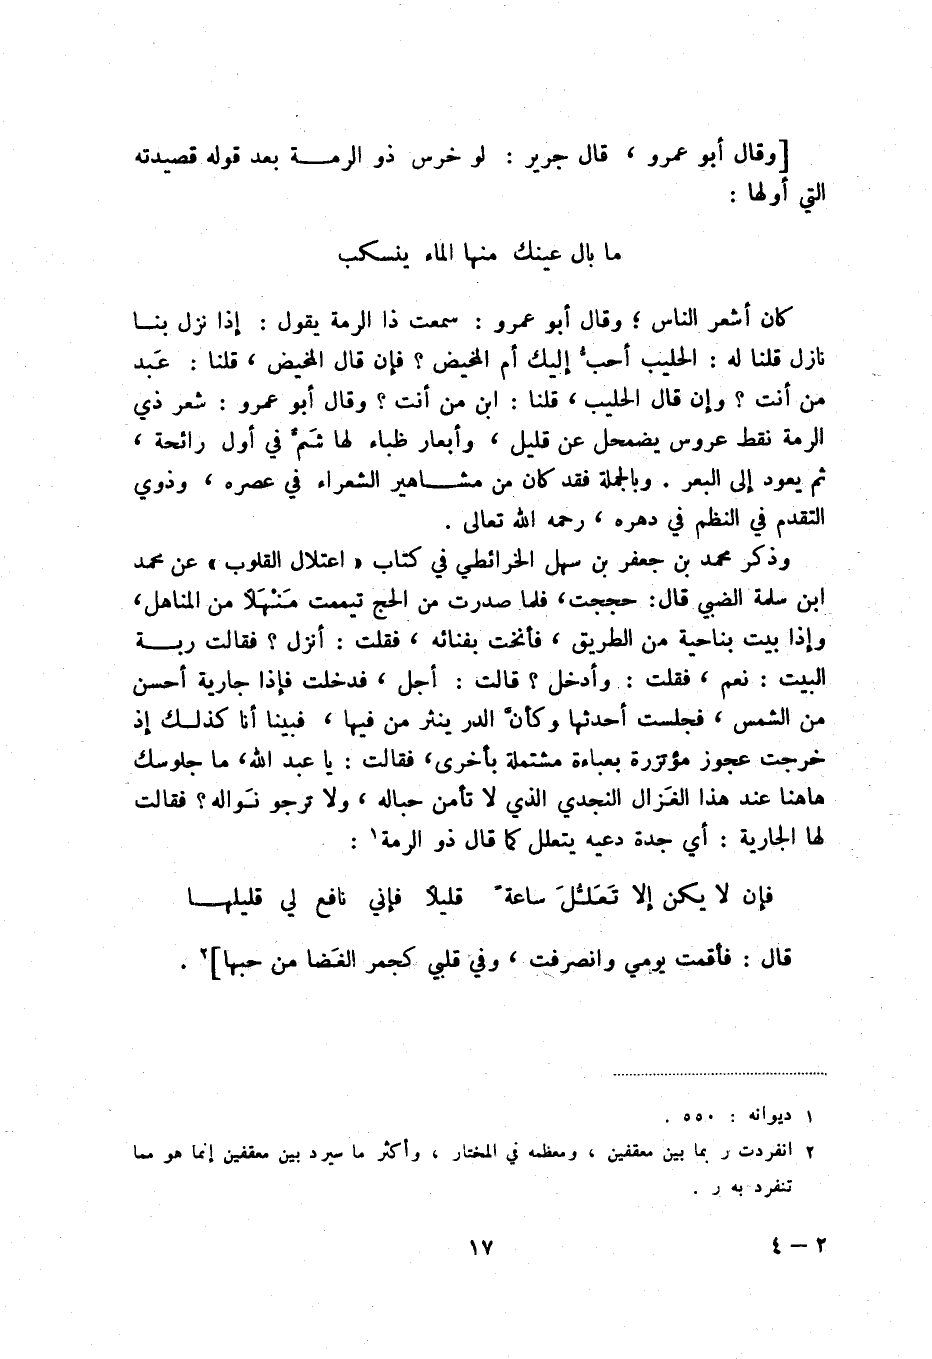 [وقال أبو عمرو ، قال جرير : لو خرس ذو الرمـــة بعد قوله قصيدته
التي أولها :
ما بال عينك منها الماء ينسكب
كان أشعر الناس ؛ وقال أبو عمرو : سمعت ذا الرمة يقول : إذا نزل بنـا
نازل قلنا له : الحليب أحبُّ إليك أم المخيض ؟ فإن قال المخيض ، قلنا : عَبد
من أنت ؟ وإن قال الحليب ، قلنا : ابن من أنت ؟ وقال أبو عمرو : شعر ذي
الرمة نقط عروس يضمحل عن قليل ، وأبعار ظباء لها شَمٌّ في أول رائحة ،
ثم يعود إلى البعر . وبالجملة فقد كان من مشـاهير الشعراء في عصره ، وذوي
التقدم في النظم في دهره ، رحمه الله تعالى .
وذكر محمد بن جعفر بن سهل الخرائطي في كتاب « اعتلال القلوب » عن محمد
ابن سلمة الضبي قال: حججت، فلما صدرت من الحج تيممت مَنْهَلاً من المناهل،
وإذا بيت بناحية من الطريق ، فأنخت بفنائه ، فقلت : أنزل ؟ فقالت ربـــة
البيت : نعم ، فقلت : وأدخل ؟ قالت : أجل ، فدخلت فإذا جارية أحسن
من الشمس ، فجلست أحدثها وكأنَّ الدر ينثر من فيها ، فبينا أنا كذلـك إذ
خرجت عجوز مؤتزرة بعباءة مشتملة بأخرى، فقالت : يا عبد الله، ما جلوسك
هاهنا عند هذا الغَزال النجدي الذي لا تأمن حباله ، ولا ترجو نَواله ؟ فقالت
لها الجارية : أي جدة دعيه يتعلل كما قال ذو الرمة١ :
فإن لا يكن إلا تَعَلُّلَ ساعةً قليلاً فإني نافع لي قليلهـــا
قال : فأقمت يومي وانصرفت ، وفي قلبي كجمر الغَضا من حبها]٢ .
١ ديوانه : ٥٥٠ .
٢ انفردت ر بما بين معقفين ، ومعظمه في المختار ، وأكثر ما سيرد بين معقفين إنما هو مما
تنفرد به ر .
٢ – ٤ ١٧